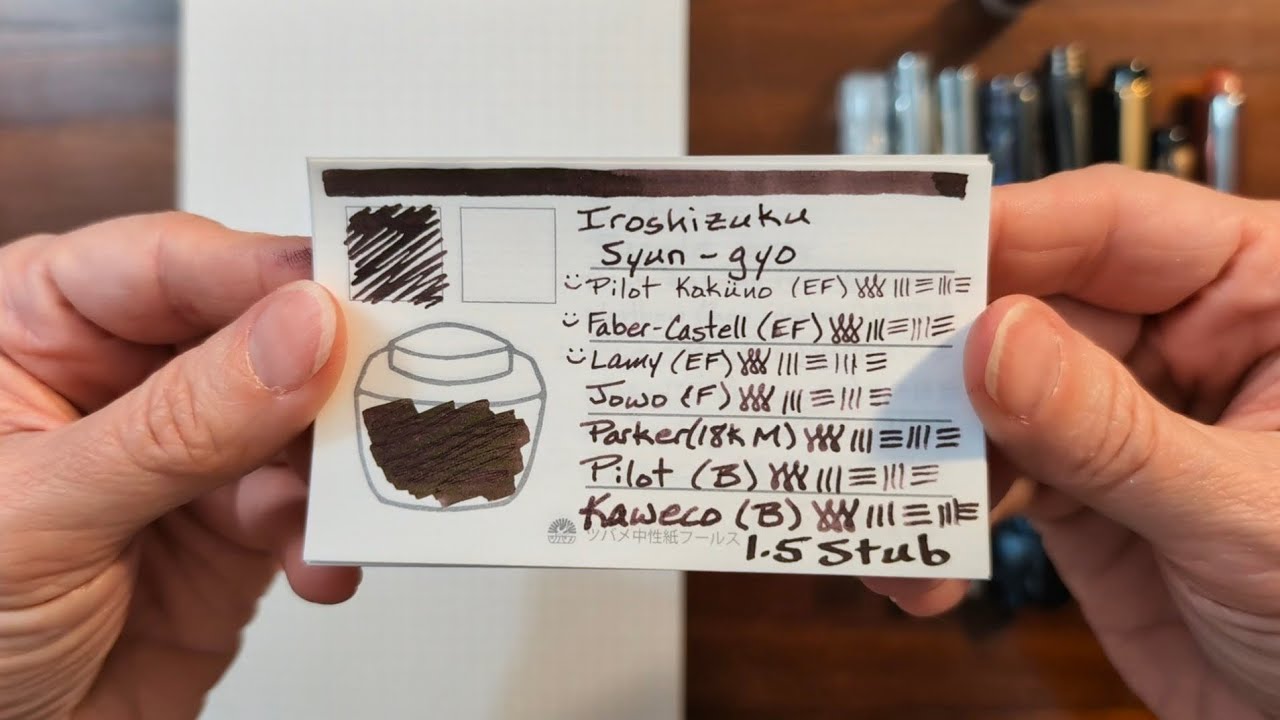 Iroshizuku
Syun-gyo
Pilot Kaküno (EF)
Faber-Castell (EF)
Lamy (EF)
Jowo (F)
Parker (18K M)
Pilot (B)
Kaweco (B)
ツバメ中性紙フールス
1.5 Stub